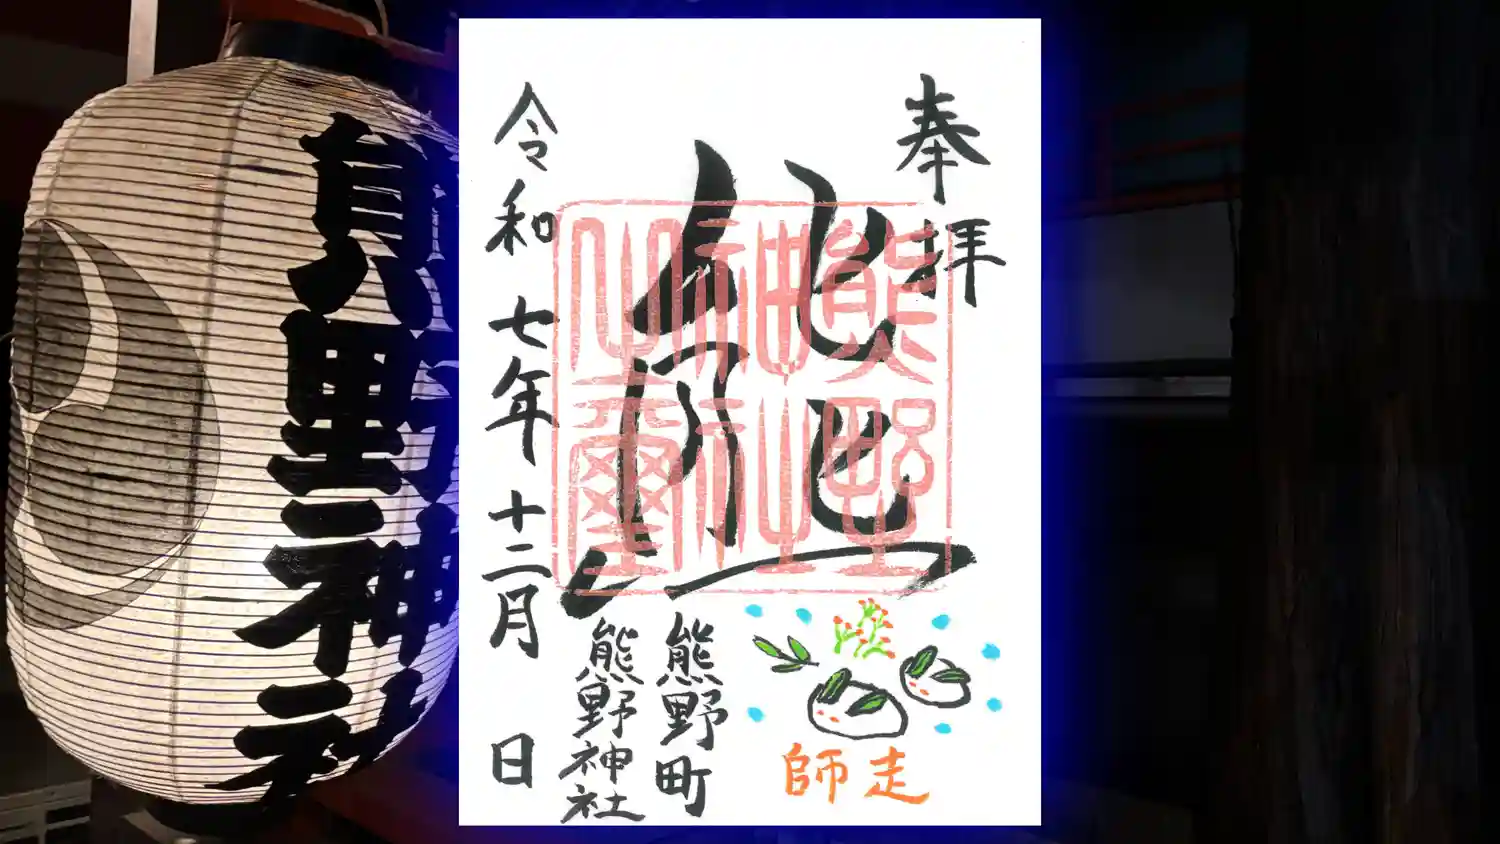 熊野神社
奉拝
熊野
神社
之璽
師走
熊野町
熊野神社
令和七年十二月 日